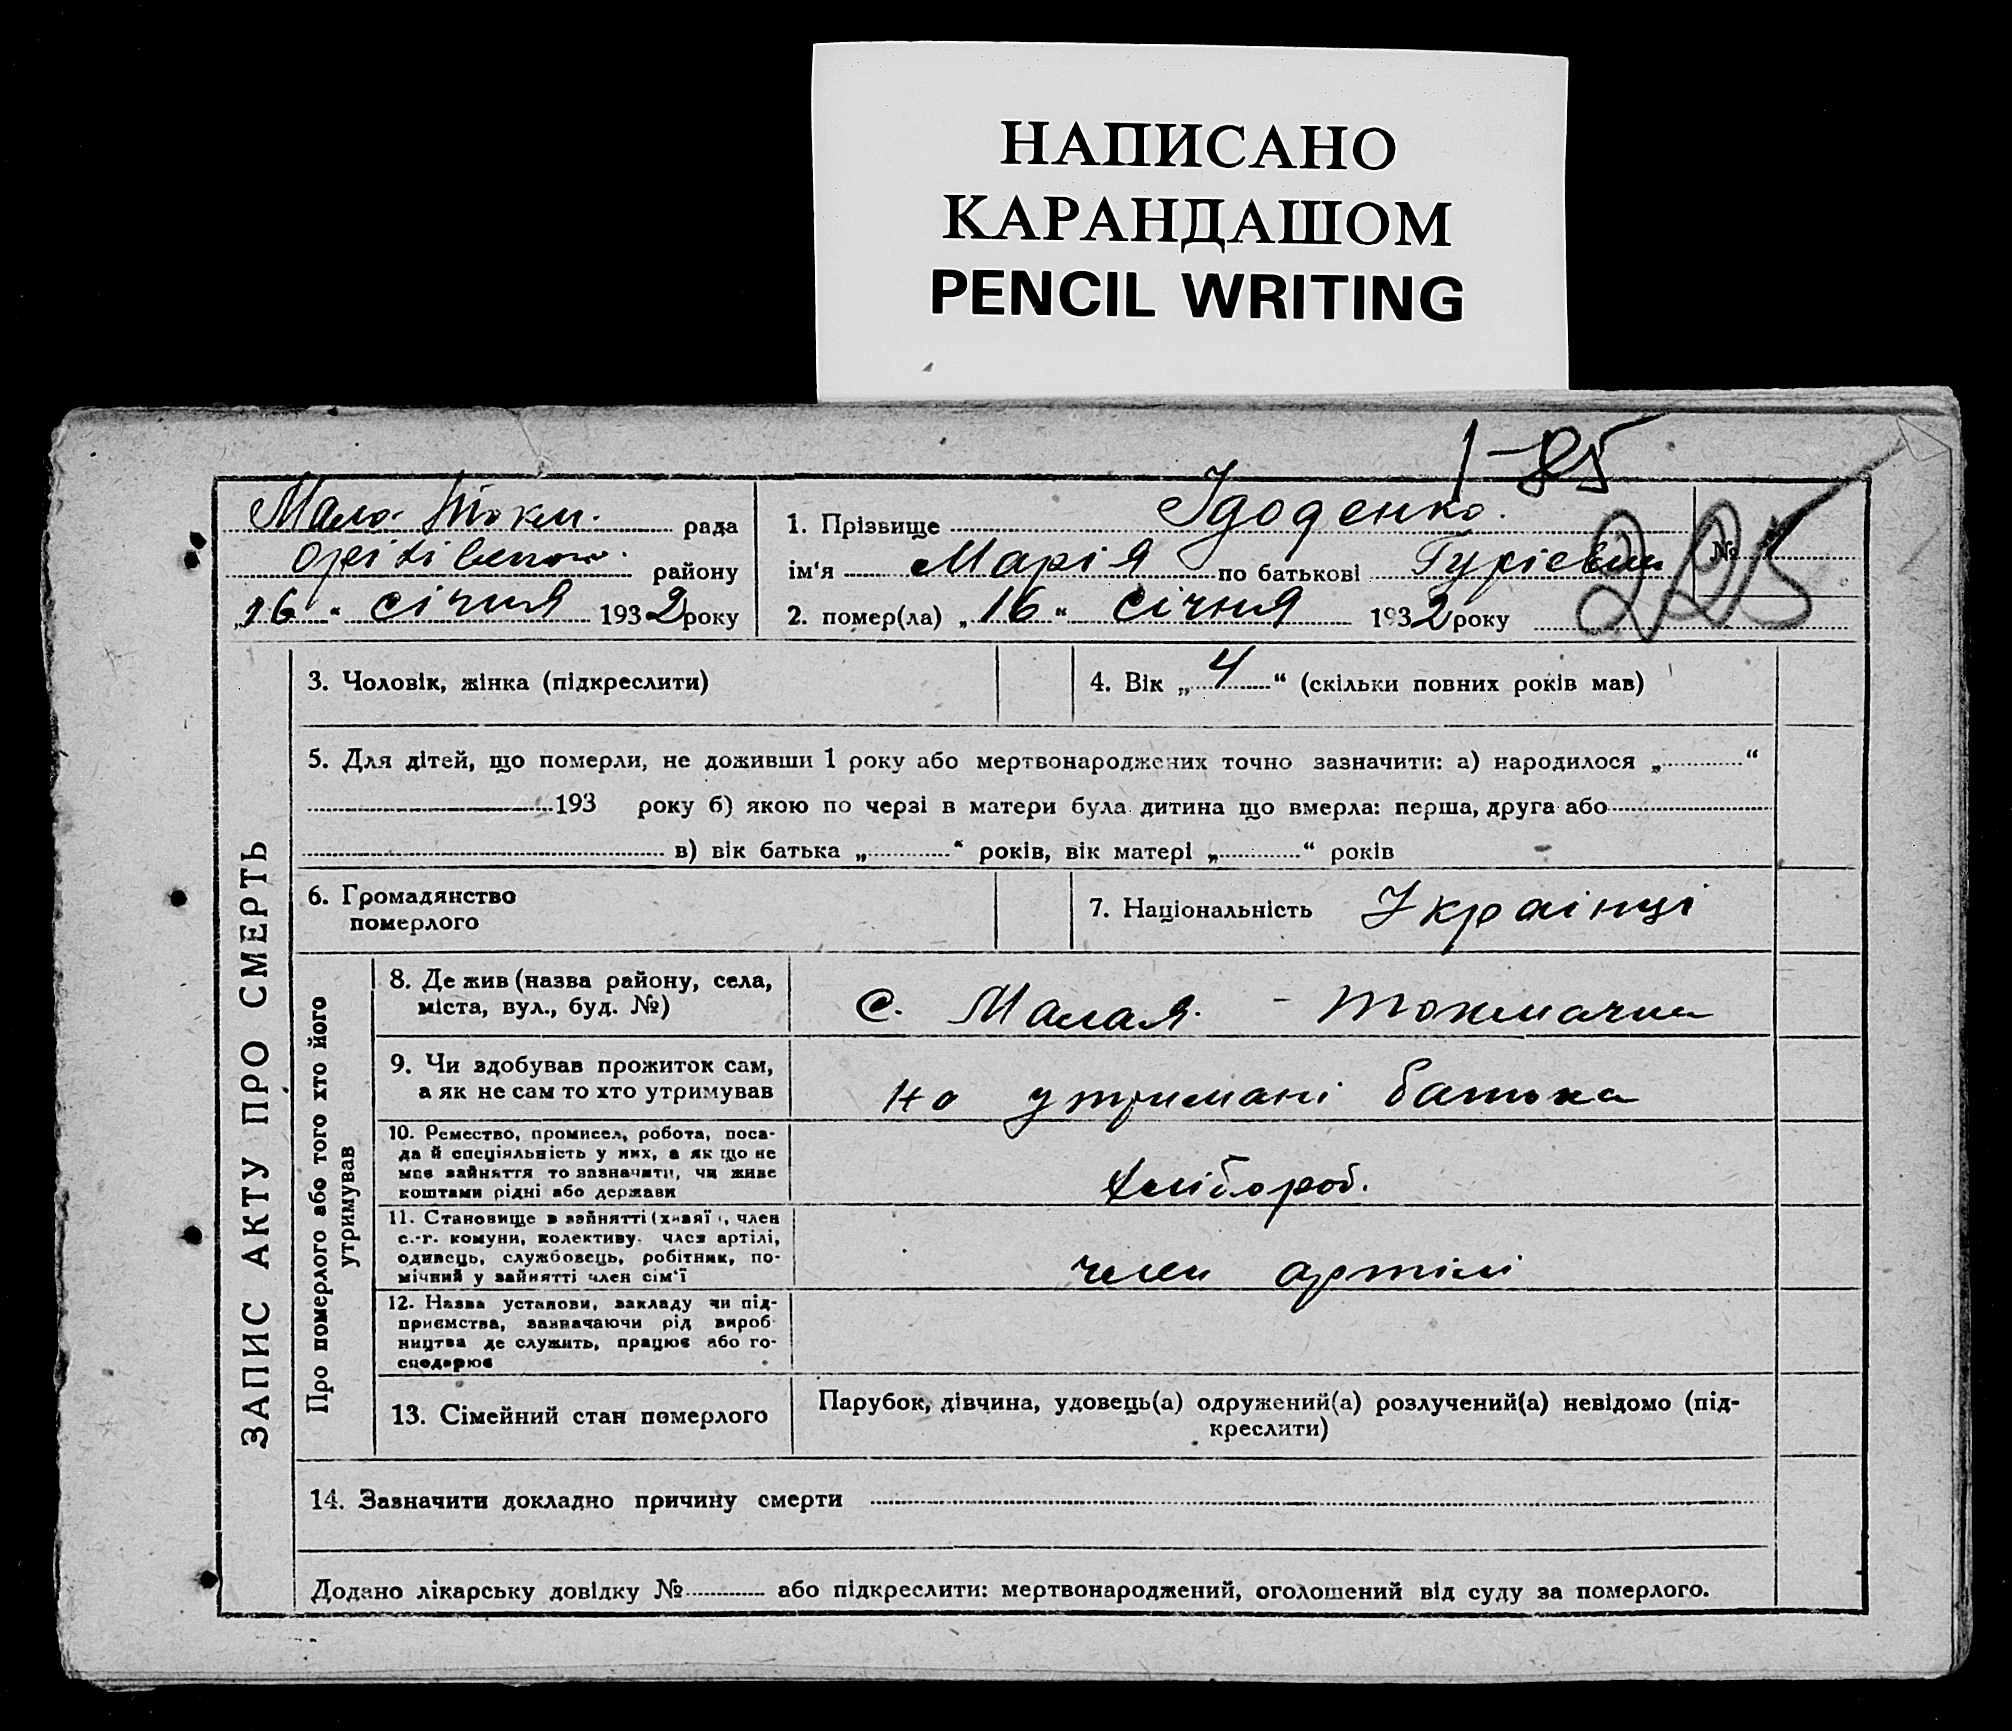 НАПИСАНО
КАРАНДАШОМ
PENCIL WRITING
1-85
Мало-Токм. рада
району
"16" січня 1932 року
1. Прізвище Удоденко.
ім'я Марія по батькові Гурієвна
2. помер(ла) "16" січня 1932 року
№
225
ЗАПИС АКТУ ПРО СМЕРТЬ
3. Чоловік, жінка (підкреслити)
4. Вік „4“ (скільки повних років мав)
5. Для дітей, що померли, не доживши 1 року або мертвонароджених точно зазначити: а) народилося „ “
193 року б) якою по черзі в матери була дитина що вмерла: перша, друга або
в) вік батька „ “ років, вік матері „ “ років
6. Громадянство
померлого
7. Національність Українці
Про померлого або того хто його
утримував
8. Де жив (назва району, села,
міста, вул., буд. №)
С. Малая - Токмачка
9. Чи здобував прожиток сам,
а як не сам то хто утримував
на утримані батька
10. Ремество, промисел, робота, поса-
да й спеціяльність у них, а як що не
має зайняття то зазначити, чи живе
коштами рідні або держави
хлібороб.
11. Становище в зайнятті (хазяї, член
с.-г. комуни, колективу, член артілі,
одинець, службовець, робітник, по-
мічний у зайнятті член сім'ї
член артілі
12. Назва установи, закладу чи під-
приємства, зазначаючи рід вироб-
ництва де служить, працює або го-
сподарює
13. Сімейний стан померлого
Парубок, дівчина, удовець(а) одружений(а) розлучений(а) невідомо (під-
креслити)
14. Зазначити докладно причину смерти
Додано лікарську довідку № або підкреслити: мертвонароджений, оголошений від суду за померлого.